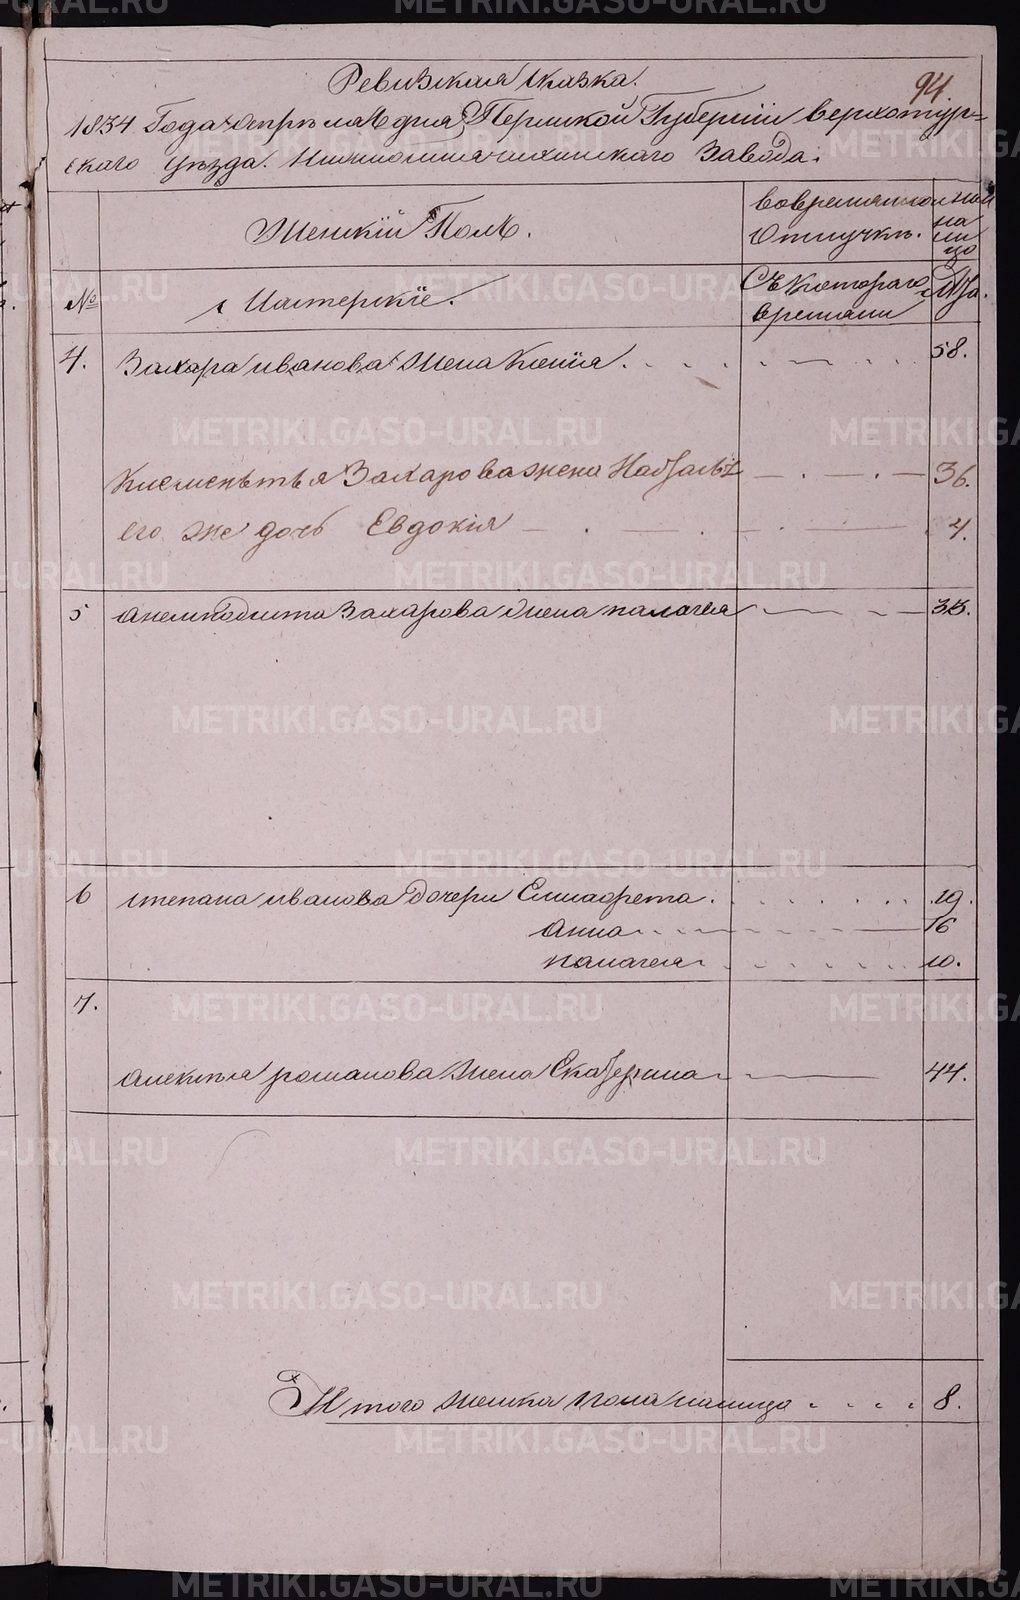 94
Ревизская сказка.
1834 Года Апреля дня Пермской Губернии Верхотур=
скаго уѣзда. Нижнесинячихинскаго Завода.
Женскій Полъ.
вовременной
Отлучкѣ.
на
ли
цо
№
Мастерскіе.
Съ котораго
времяни
Лѣта.
4. Захара иванова жена Ксенія. 58.
Клементья Захарова жена Наталья 36.
его же дочь Евдокія 4.
5 Анемподиста Захарова жена палагея 33.
6 степана иванова дочери Елисафета. 19.
Анна 16
палагея 10.
7.
Алексѣя романова жена Екатерина 44.
Итого женска пола налицо 8.
METRIKI.GASO-URAL.RU